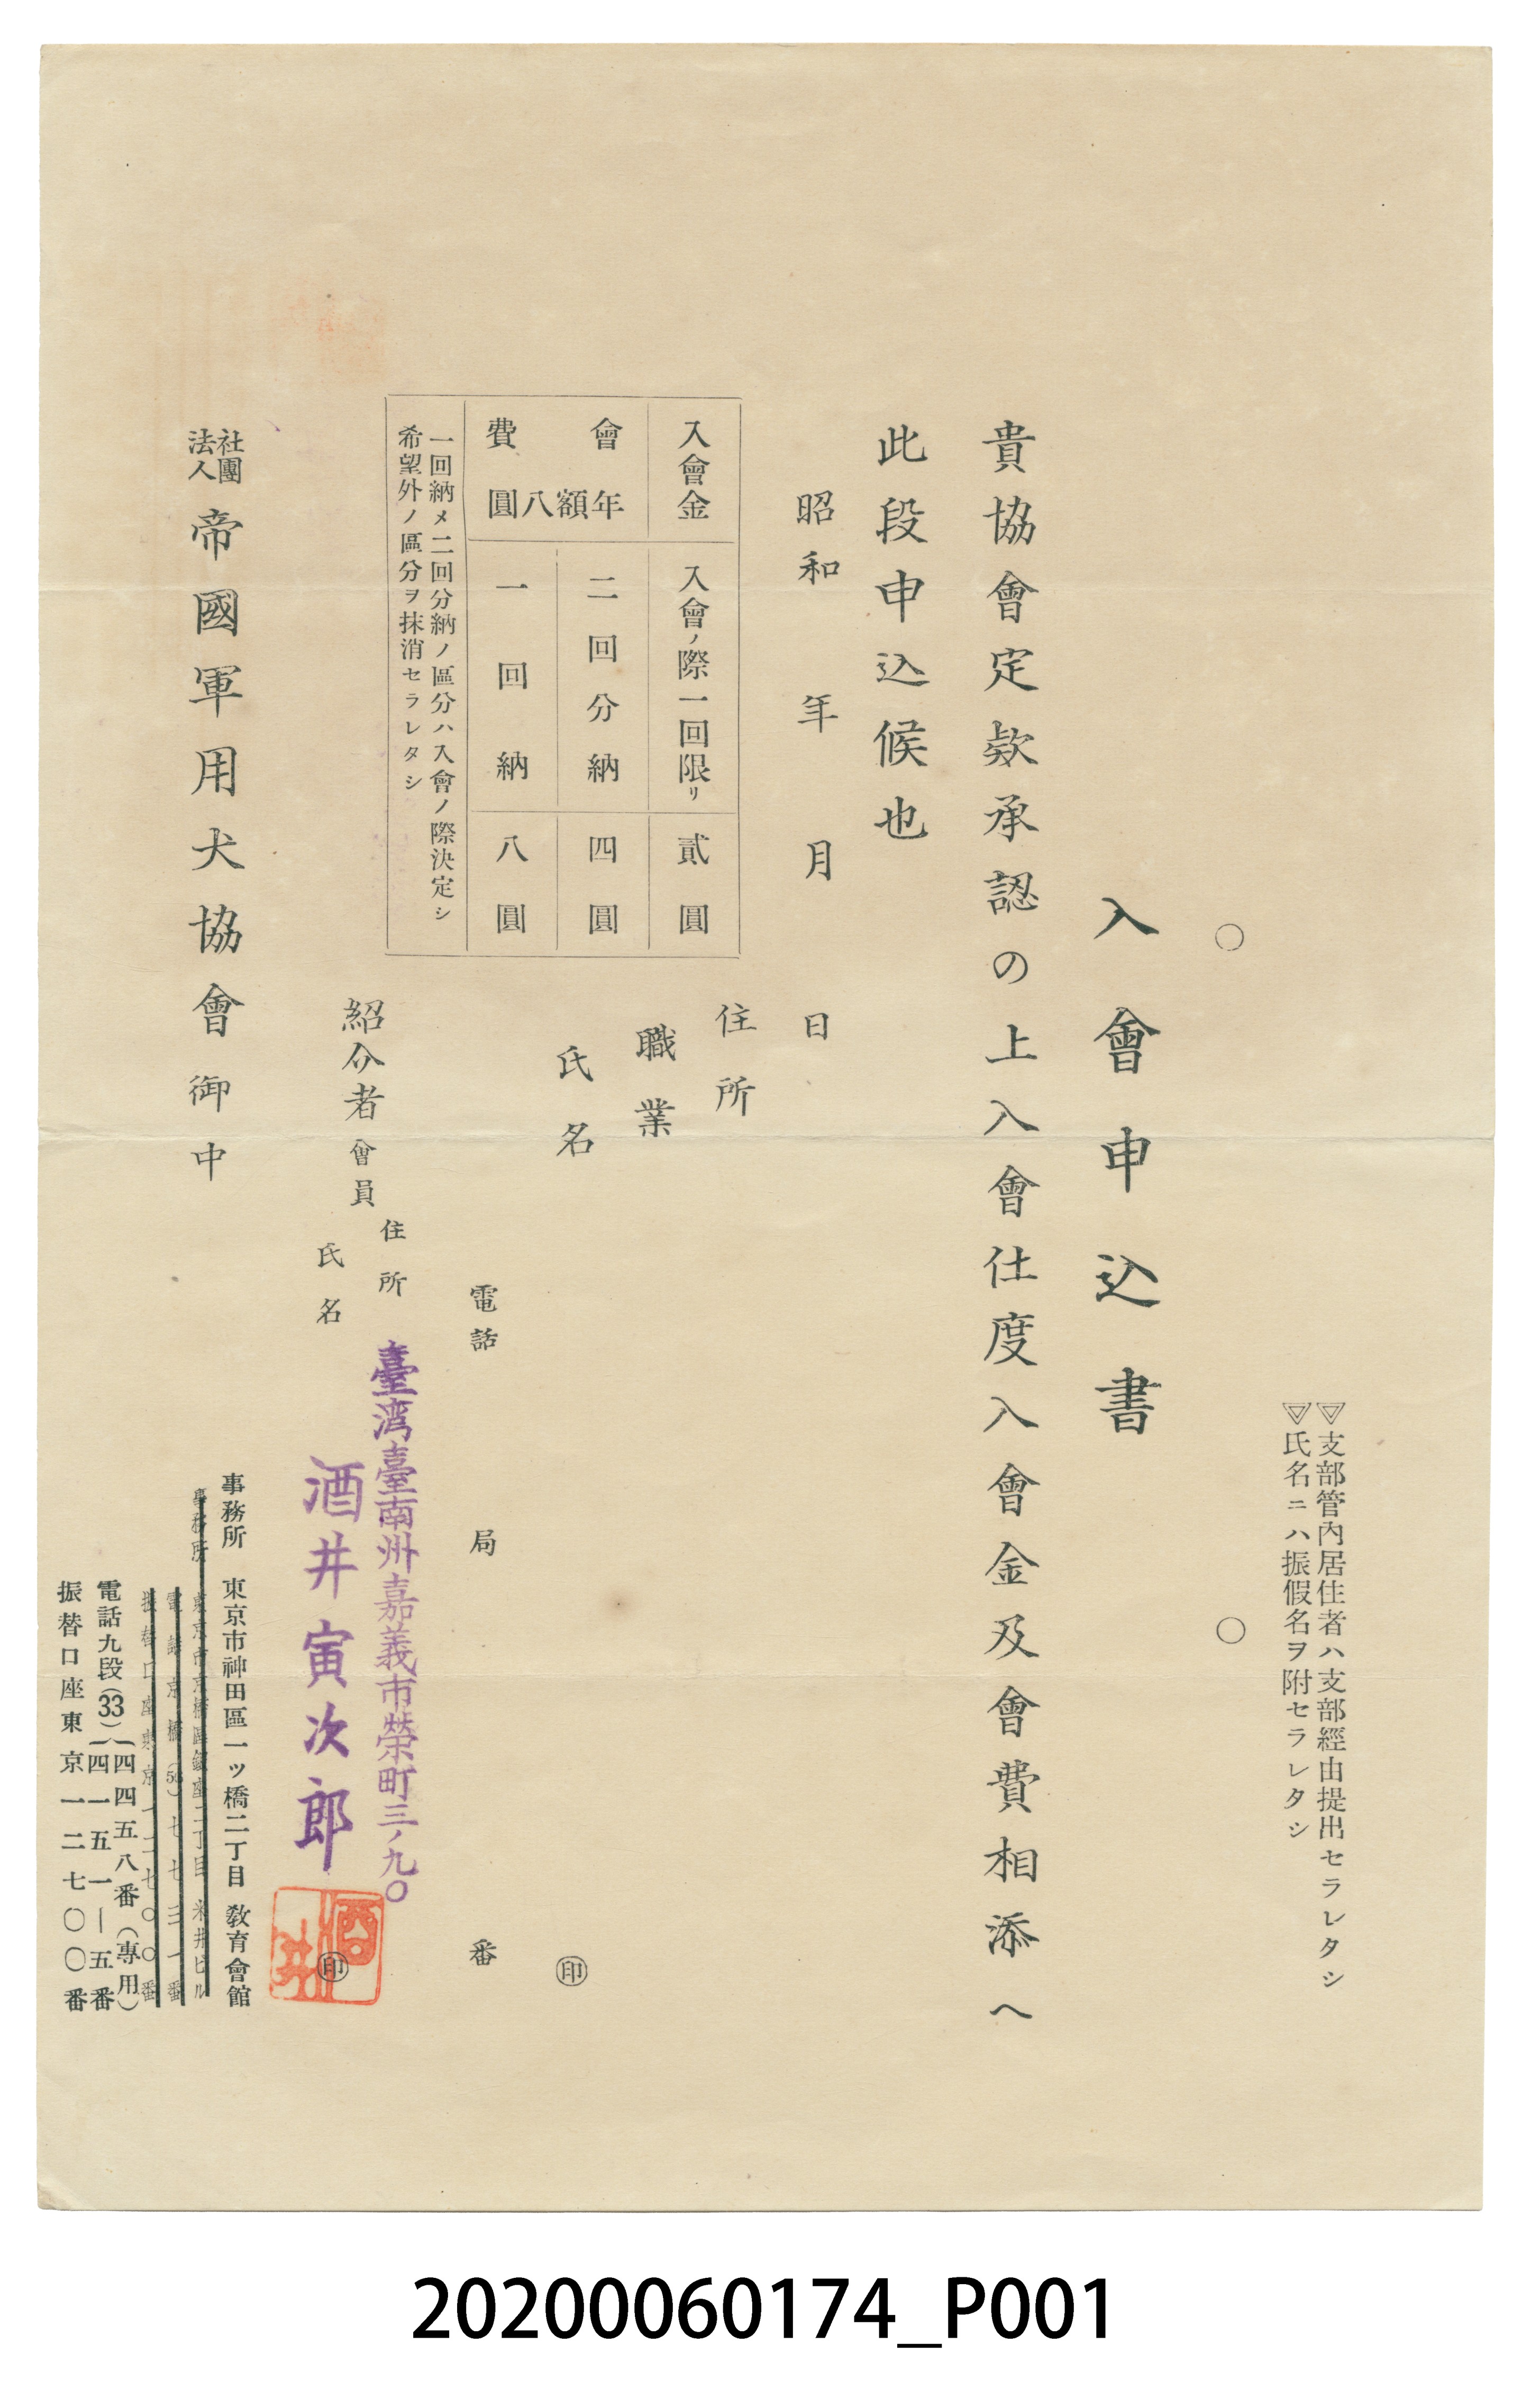 ▽支部管內居住者ハ支部經由提出セラレタシ
▽氏名ニハ振假名ヲ附セラレタシ
○ ○
入會申込書
貴協會定款承認の上入會仕度入會金及會費相添へ
此段申込候也
昭和 年 月 日
住所
職業
氏名 ㊞
電話 局 番
入會金 入會ノ際一回限リ 貳圓
會費 年額八圓 二回分納 四圓
一回納 八圓
一回納メ二回分納ノ區分ハ入會ノ際決定シ
希望外ノ區分ヲ抹消セラレタシ
紹介者會員
住所 臺湾臺南州嘉義市榮町三ノ九〇
氏名 酒井寅次郎 ㊞
酒井
社團法人 帝國軍用犬協會御中
事務所 東京市神田區一ッ橋二丁目 敎育會館
事務所 東京市京橋區銀座二丁目 米井ビル
電話京橋(56)七七三一番
振替口座東京一二七〇〇番
電話九段(33){四四五八番(專用)
四一五一—五番
振替口座東京一二七〇〇番
20200060174_P001